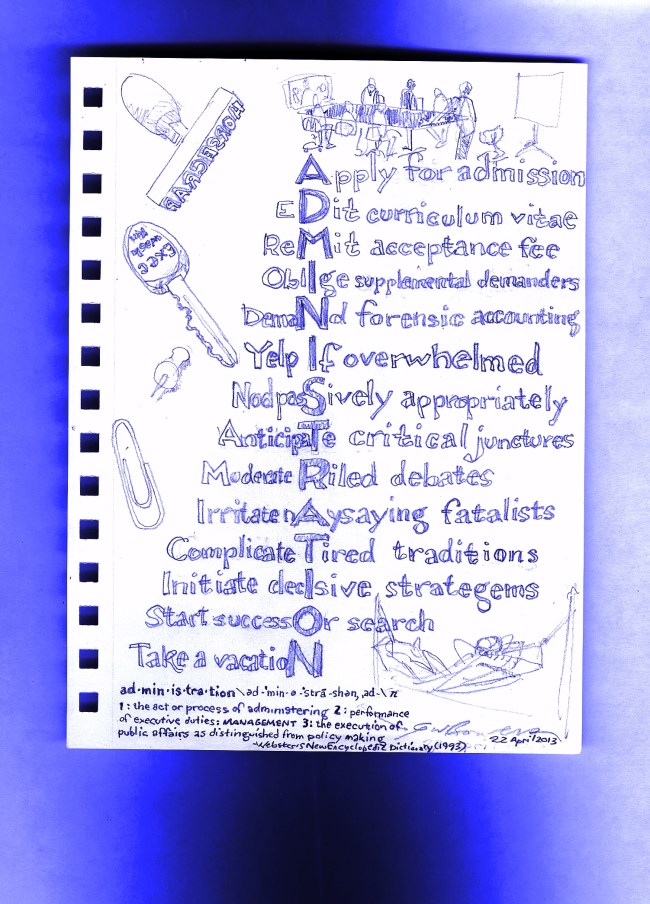 HORSECRAP
Exec
Apply for admission
EDit curriculum vitae
ReMit acceptance fee
OblIge supplemental demanders
DemaNd forensic accounting
Yelp If overwhelmed
Nod pasSively appropriately
AnticipaTe critical junctures
Moderate Riled debates
Irritate nAysaying fatalists
Complicate Tired traditions
Initiate decIsive strategems
Start successOr search
Take a vacatioN
ad·min·is·tra·tion \əd-'min-ə-'strā-shən, ad-\ n
1: the act or process of administering 2: performance
of executive duties: MANAGEMENT 3: the execution of
public affairs as distinguished from policy making
-Webster's New Encyclopedic Dictionary (1993)
22 April 2013